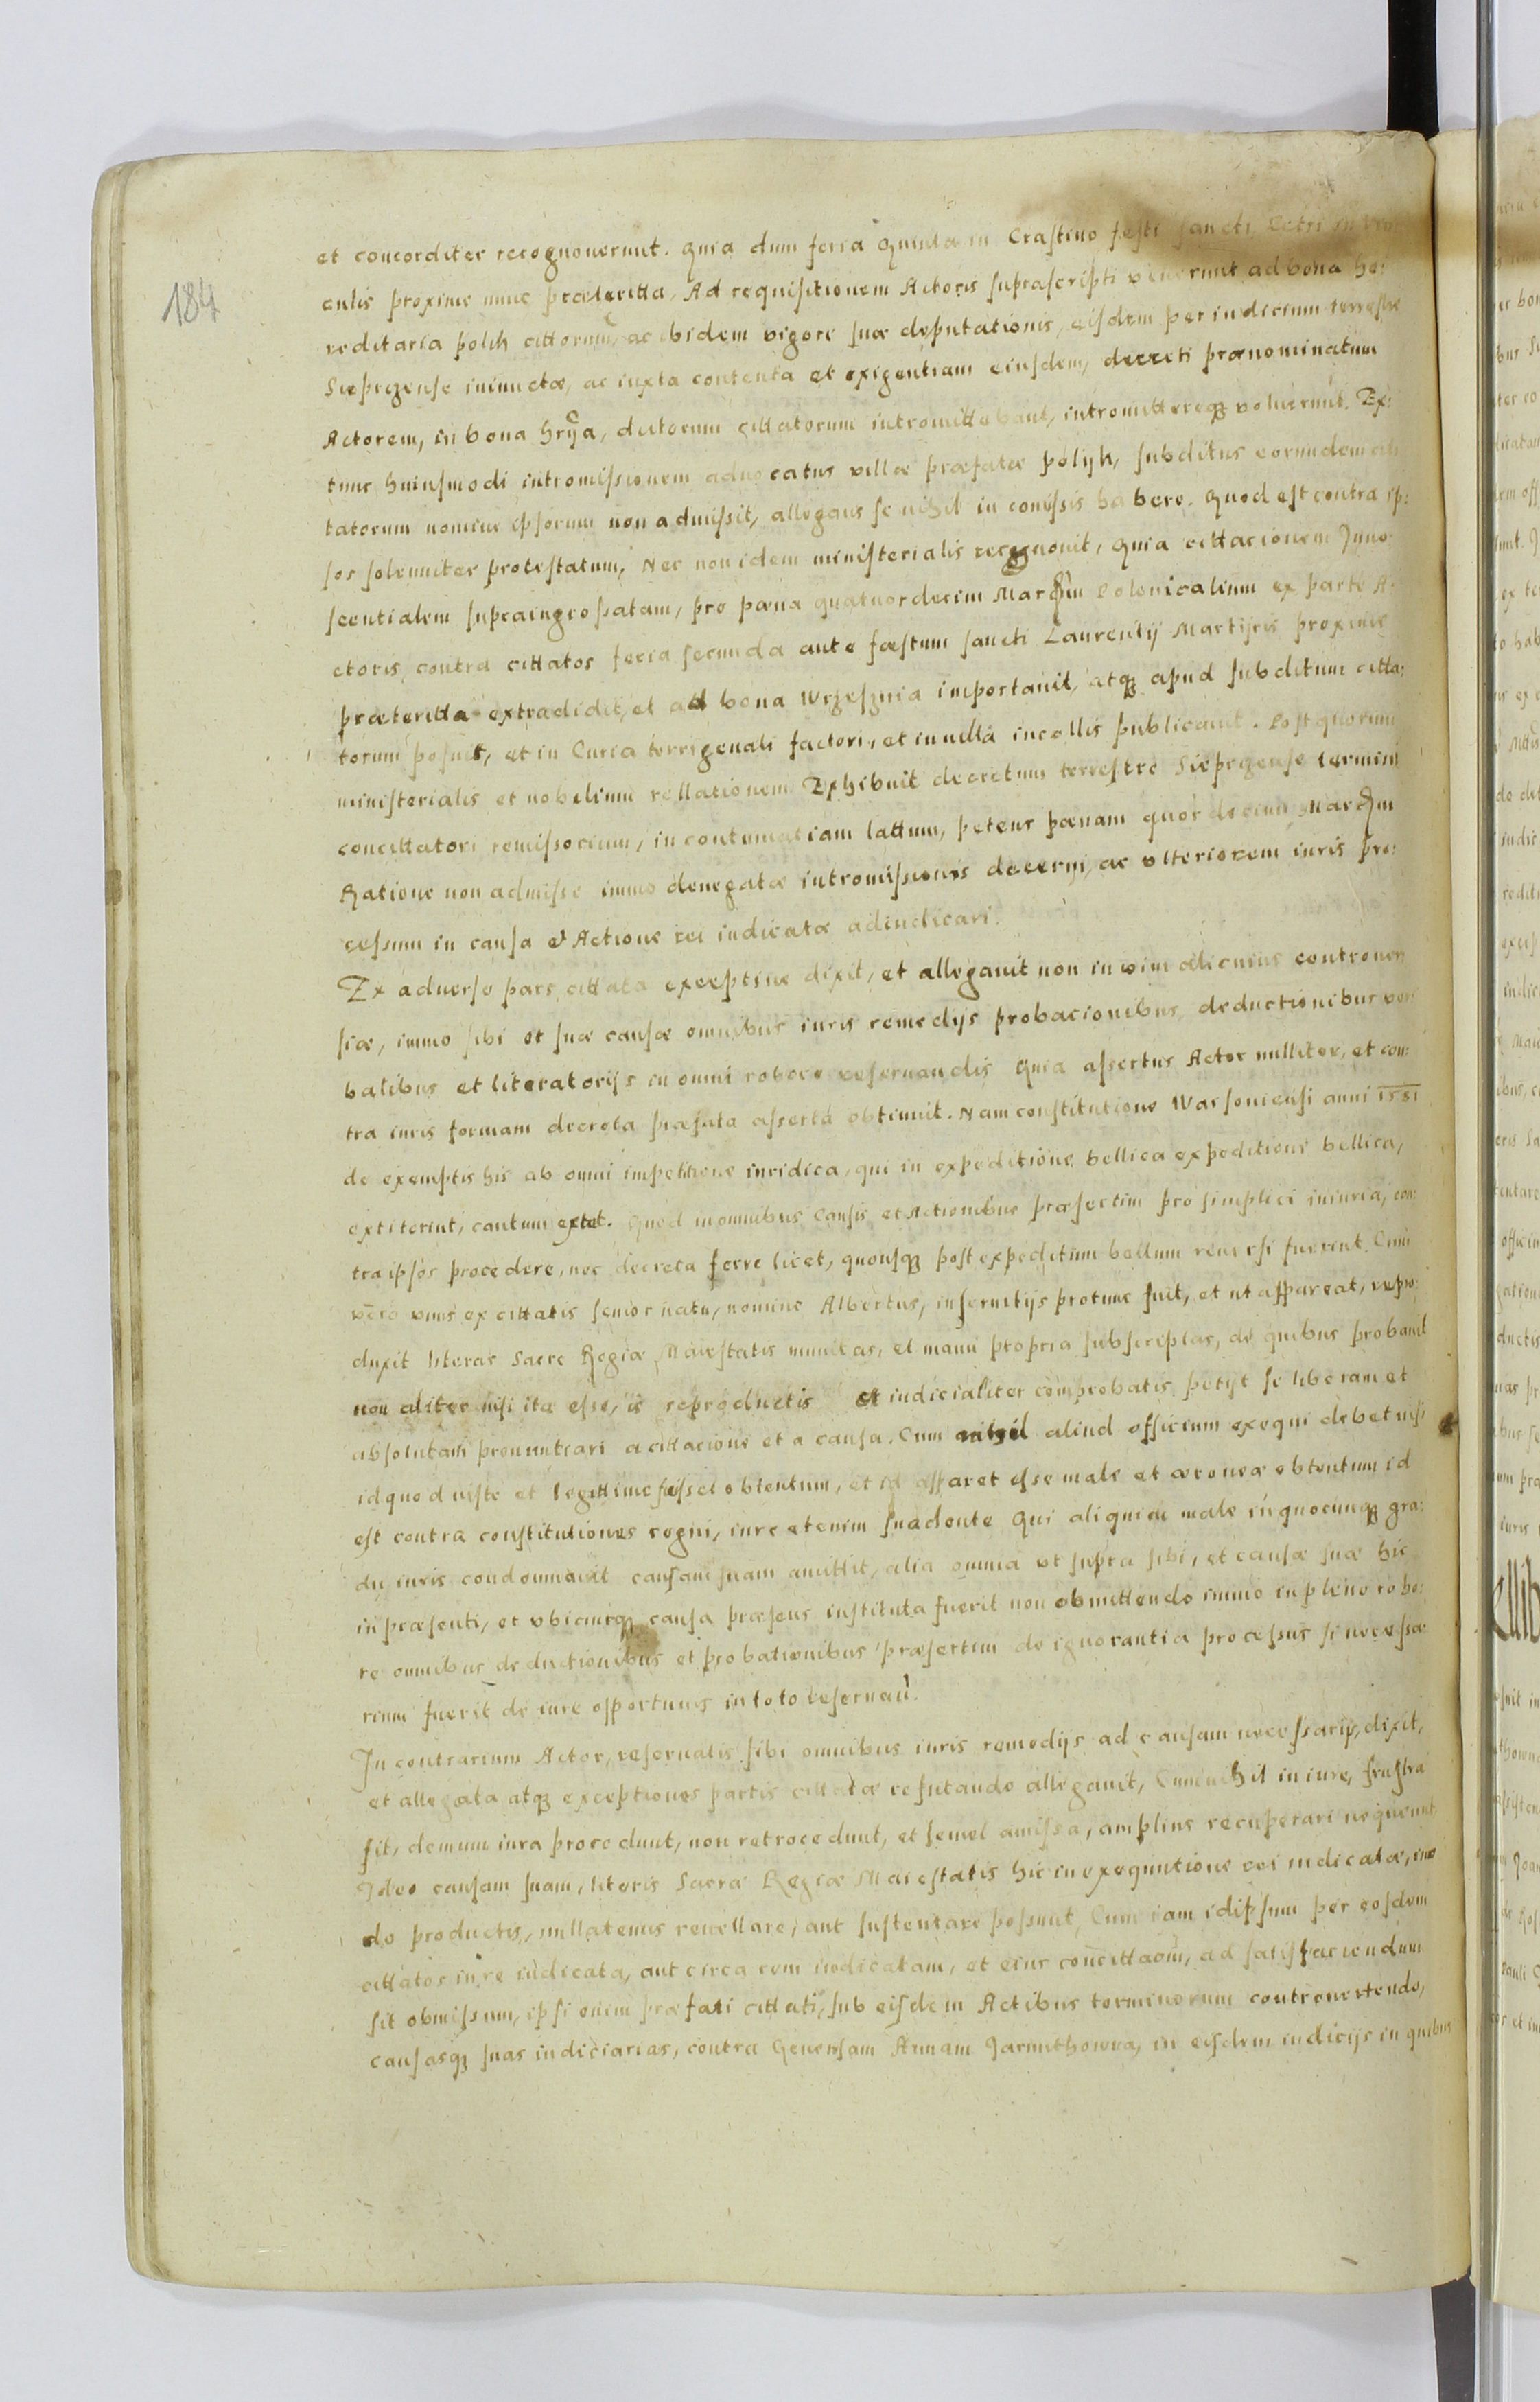 184
et concorditer recognoverunt. Quia dum feria Quinta in Crastino festi sancti Petri in vin
culis proxime nunc præteritta, Ad requisitionem Actoris suprascripti venerunt ad bona hæ:
reditaria polik cittorum, ac ibidem vigore suæ deputationis, eisdem per iudicium terrestre
Sieprczense iniunctæ, ac iuxta contenta et exigentiam eiusdem, decreti prænominatum
Actorem, in bona hrria, dictorum cittatorum intromittebant, intromittereq3 voluerunt. Ex:
tunc huiusmodi intromissionem advocatus villæ præfatæ polijk, subditus eorundem cit
tatorum nomine ipsorum non admissit, allegans se nihil in comissis habere. Quod est contra ip:
sos solenniter protestatum, Nec non idem ministerialis recognovit, Quia cittacionem Juno
scentialem supraingrossatam, pro pæna quatuordecim Marcarum Polonicalium ex parte A:
ctoris, contra cittatos feria secunda ante fæstum sancti Laurentij Martijris proxime
præteritta extradidit, et ad bona Wrzesznia importavit, atq3 apud subditum citta:
torum posuit, et in Curia terrigenali factori, et in villa incollis publicavit. Post quorum
ministerialis et nobilium rellationem Exhibuit decretum terrestre Sieprczense termini
concittatori remissorium, in contumatiam lattum, petens pænam quordecim Marcarum
Ratione non admisse immo denegatæ intromissionis decerni, ac ulteriorem iuris pro:
cessum in causa et Actione rei iudicatæ adiudicari.
Ex adverso pars cittata exceptive dixit, et allegavit non in vim alicuius controver
siæ, immo sibi et suæ causæ omnibus iuris remedijs probacionibus deductionibus ver
balibus et literatorijs in omni robore reservandis Quia assertus Actor nulliter, et con:
tra iuris formam decreta præfata asserta obtinuit. Nam constitutione Warsoviensi anni 1581
de exemptis his ab omni impetitione iuridica, qui in expeditione bellica expeditione bellica,
extiterint, cautum extet. Quod in omnibus Causis et Actionibus præsertim pro simplici iniuria, con:
tra ipsos procedere, nec decreta ferre licet, quousq3 post expeditum bellum reversi fuerint Cum
vero unus ex cittatis senior natu, nomine Albertus, in servitijs protunc fuit, et ut appareat, repro:
duxit literas Sacre Regiæ Maiestatis munitas, et manu propria subscriptas, de quibus probavit
non aliter nisi ita esse, is reproductis et iudicialiter comprobatis petijt se liberam et
absolutam pronuntiari a cittacione et a causa. Cum nihil aliud officium exequi debet nisi
id quod iuste et legittime fuisset obtentum, et id apparet esse male et æroneæ obtentum id
est contra constitutiones regni, iure etenim suadente Qui aliquem male in quocunq3 gra:
du iuris condemnavit causam suam amittit, alia omnia ut supra sibi, et causæ suæ hic
in præsenti, et ubicunq3 causa præsens instituta fuerit non obmittendo immo in pleno robo:
re omnibus deductionibus et probationibus præsertim de ignorantia processus si necessa:
rium fuerit de iure opportunis in toto reservan.
In contrarium Actor, reservatis sibi omnibus iuris remedijs ad causam necessarijs, dixit,
et allegata atq3 exceptiones partis cittatæ refutando allegavit, Cum nihil in iure, frustra
fit, demum iura procedunt, non retrocedunt, et semel amissa, amplius recuperari nequeunt
Ideo causam suam, literis Sacræ Regiæ Maiestatis hic in exequutione rei iudicatæ, mo
do productis, nullatenus revellare, aut sustentare possunt, Cum iam id ipsum per eosdem
cittatos in re iudicata, aut circa rem iudicatam, et eius concittaom, ad satisfaciendum
sit obmissum, ipsi enim præfati cittati, sub eisdem Actibus terminorum controvertendo,
causasq3 suas iudiciarias, contra Generosam Annam Jarmithowna, in eisdem iudicijs in quibus